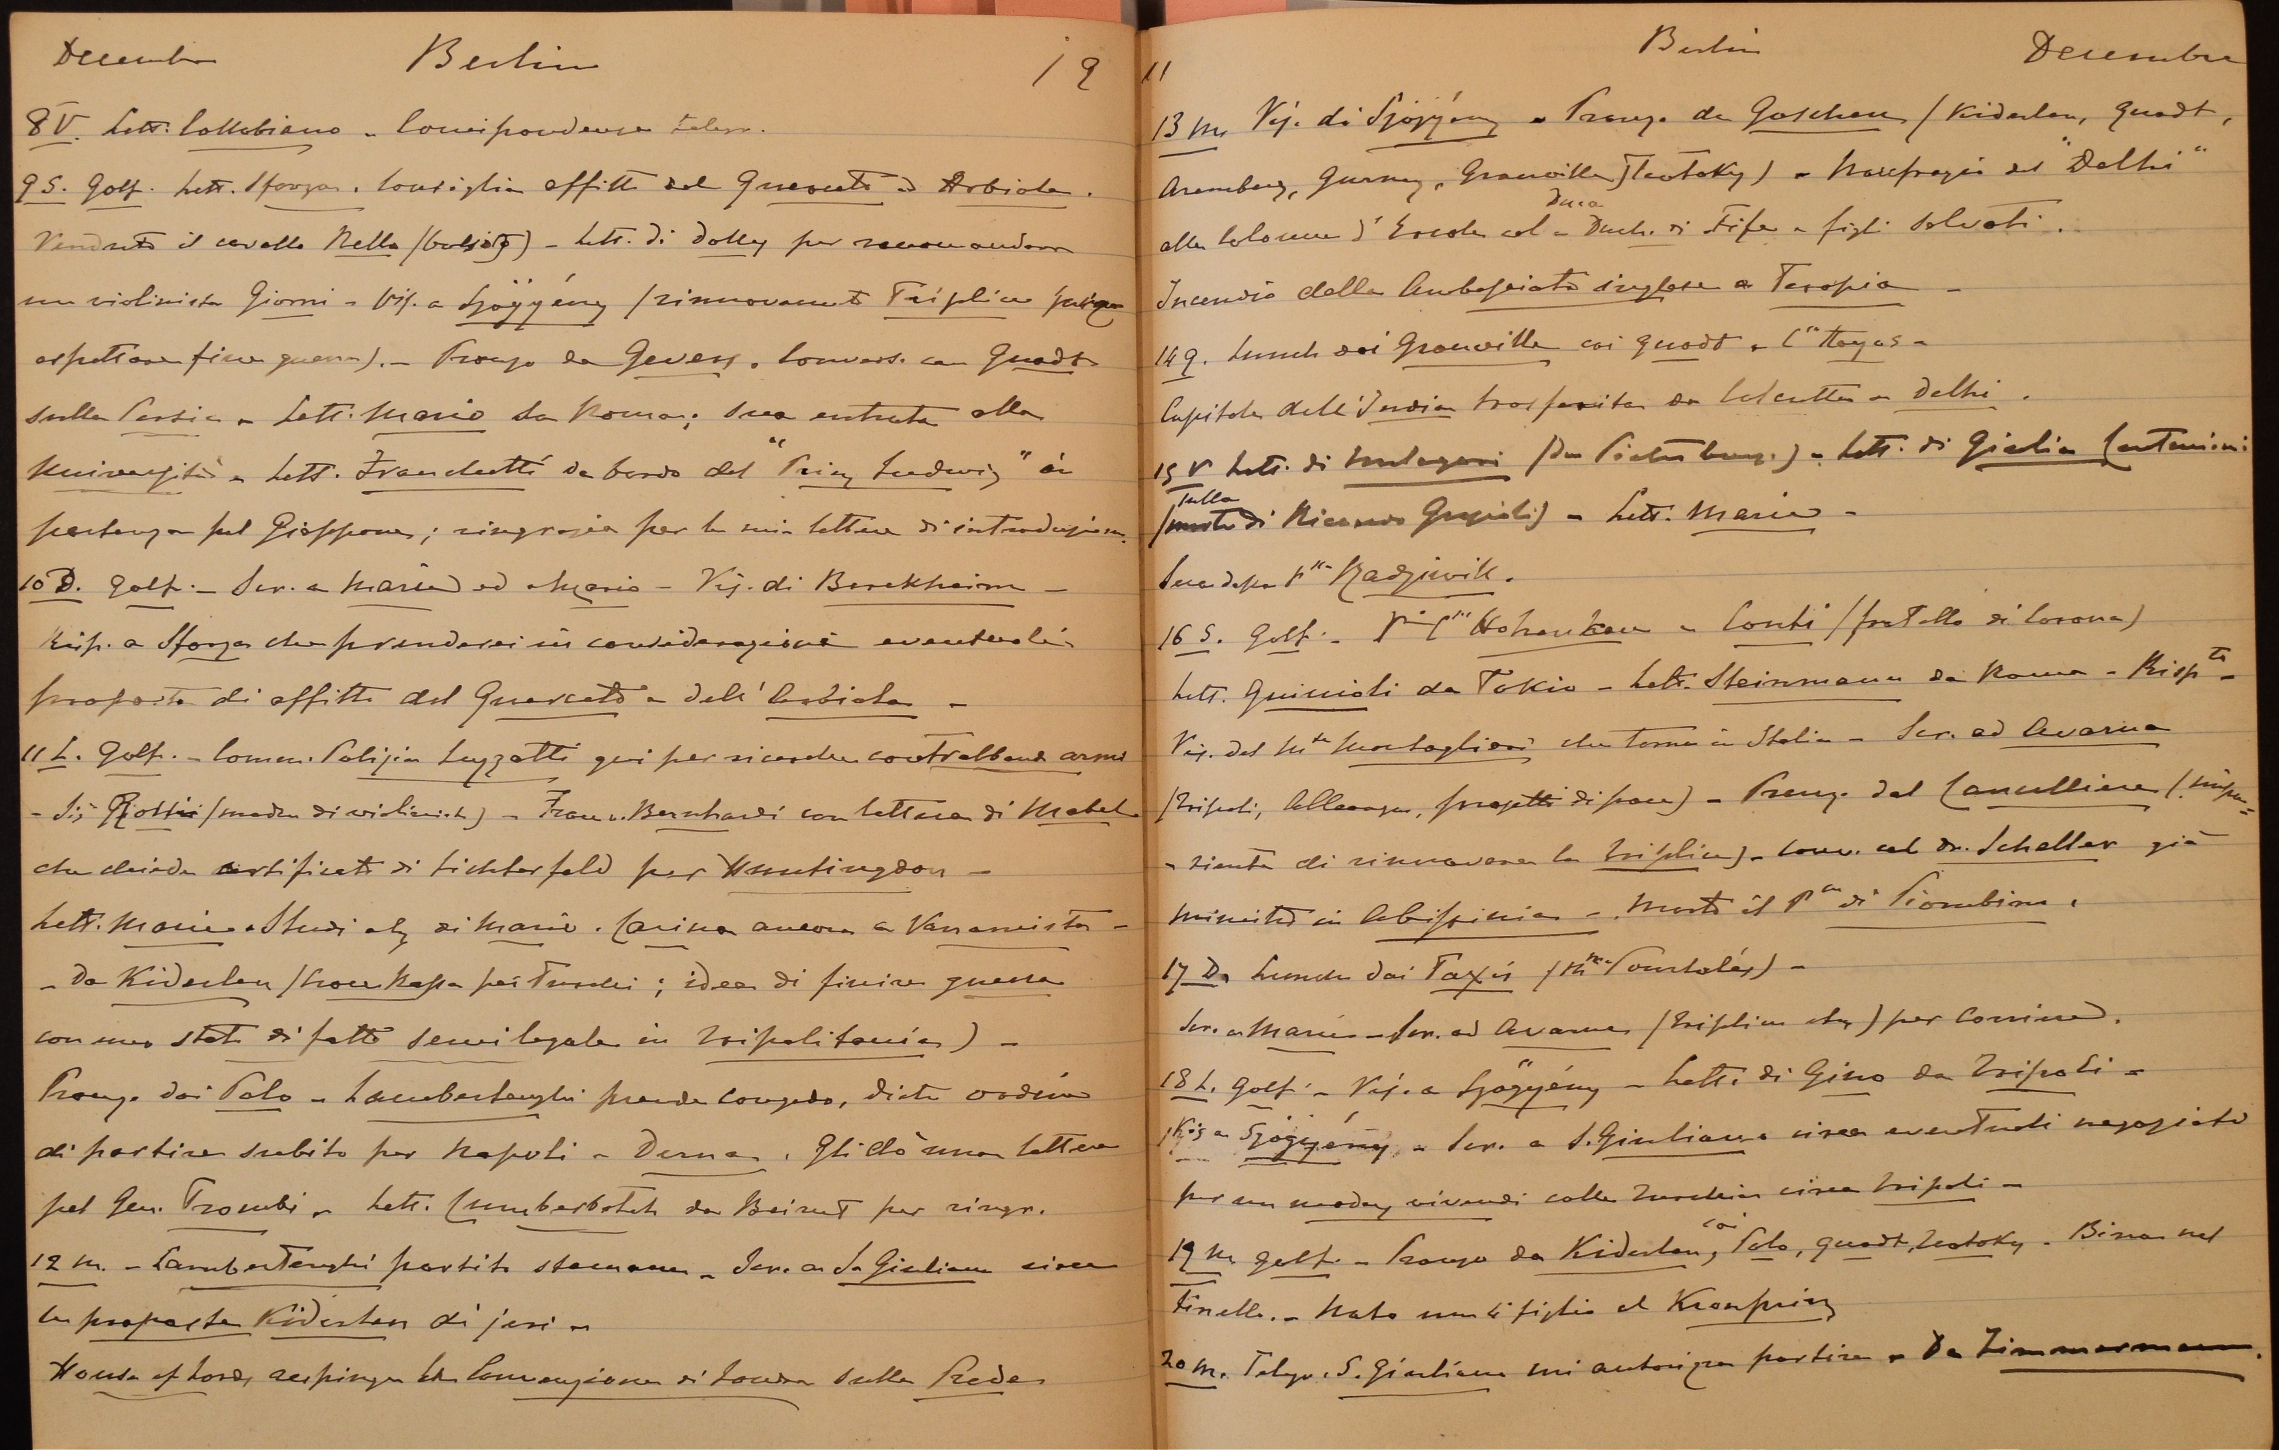 Decembre Berlin 19
8 V. Lett. Collobiano - Corrispondenza telegr.
9 S. Golf. Lett. Sforza. Consiglia affitto del Querceto e Arbiola.
Venduto il cavallo Nella (bolso) - Lett. di Dolly per raccomandare
un violinista Giorni - Vis. a Szögyény (rinnovamento Triplice senza
aspettare fine guerra). - Pranzo da Gevers. Convers. con Quadt
sulla Persia - Lett. Mario da Roma; sua entrata alla
Università - Lett. Franchetti da bordo del "Prinz Ludwig" in
partenza pel Giappone; ringrazia per le mie lettere di introduzione.
10 D. Golf. - Scr. a Maria ed a Mario - Vis. di Berckheim -
Risp. a Sforza che prenderei in considerazione eventuali
proposte di affitto del Querceto e dell'Arbiola -
11 L. Golf. - Comm. Polizia Luzzatti qui per ricerche contrabbando armi
- Sig. (madre di violinista) - Frau v. Bernhardi con lettera di Mabel
che chiede certificato di Lichterfeld per Huntingdon -
Lett. Maria. Studi di Mario. Carina ancora a Varramista -
- Da Kiderlen (Croce Rossa pei Turchi; idea di finire guerra
con uno stato di fatto semilegale in Tripolitania) -
Pranzo dai Polo - Lambertenghi prende congedo, dietro ordine
di partire subito per Napoli - Derna. Gli dò una lettera
pel Gen. Trombi - Lett. Cumberbatch da Beirut per ringr.
12 M. - Lambertenghi partito stamane - Scr. a S. Giuliano circa
la proposta Kiderlen di jeri -
House of Lords respinge la Convenzione di Londra sulle Prede
11 Berlin Decembre
13 M. Vis. di Szögyény - Pranzo da Goschen (Kiderlen, Quadt,
Aremberg, Gurney, Granville, Theotoky) - Naufragio del "Delhi"
alle Colonne d'Ercole col Duca - Duch. di Fife - figli salvati.
Incendio della Ambasciata inglese a Terapia -
14 G. Lunch dai Granville coi Quadt -
Capitale dell'India trasferita da Calcutta a Delhi.
15 V. Lett. di (da Pietroburgo) - Lett. di Giulia Centurioni
(sulla morte di Riccardo) - Lett. Maria -
Sera dopo Pssa Radziwill.
16 S. Golf. - Hohenlohe - Conti (fratello di Corona)
Lett. Guiccioli da Tokio - Lett. Steinmann da Roma - Risp.to -
Vis. del Mse Montagliari che torna in Italia - Scr. ad Avarna
(Tripoli, Alleanza, progetti di pace) - Pranzo dal Cancelliere (impa-
- ziente di rinnovare la Triplice) - Conv. col Dr. Scheller già
ministro in Abissinia -. Morto il Pe di Piombino.
17 D. Lunch dai Taxis (Mme Pourtalès) -
Scr. a Maria - Scr. ad Avarna (Triplice etc) per corriere.
18 L. Golf. - Vis. a Szögyény - Lett. di Gino da Tripoli -
Vis. a Szögyény - Scr. a S. Giuliano circa eventuali negoziati
per un modus vivendi colla Turchia circa Tripoli -
19 M. Golf. - Pranzo da Kiderlen, coi Polo, Quadt, Teotoky - Birra nel
- Nato un 4° figlio al Kronprinz
20 M. Telegr. S. Giuliano mi autorizza partire - Da Zimmermann.